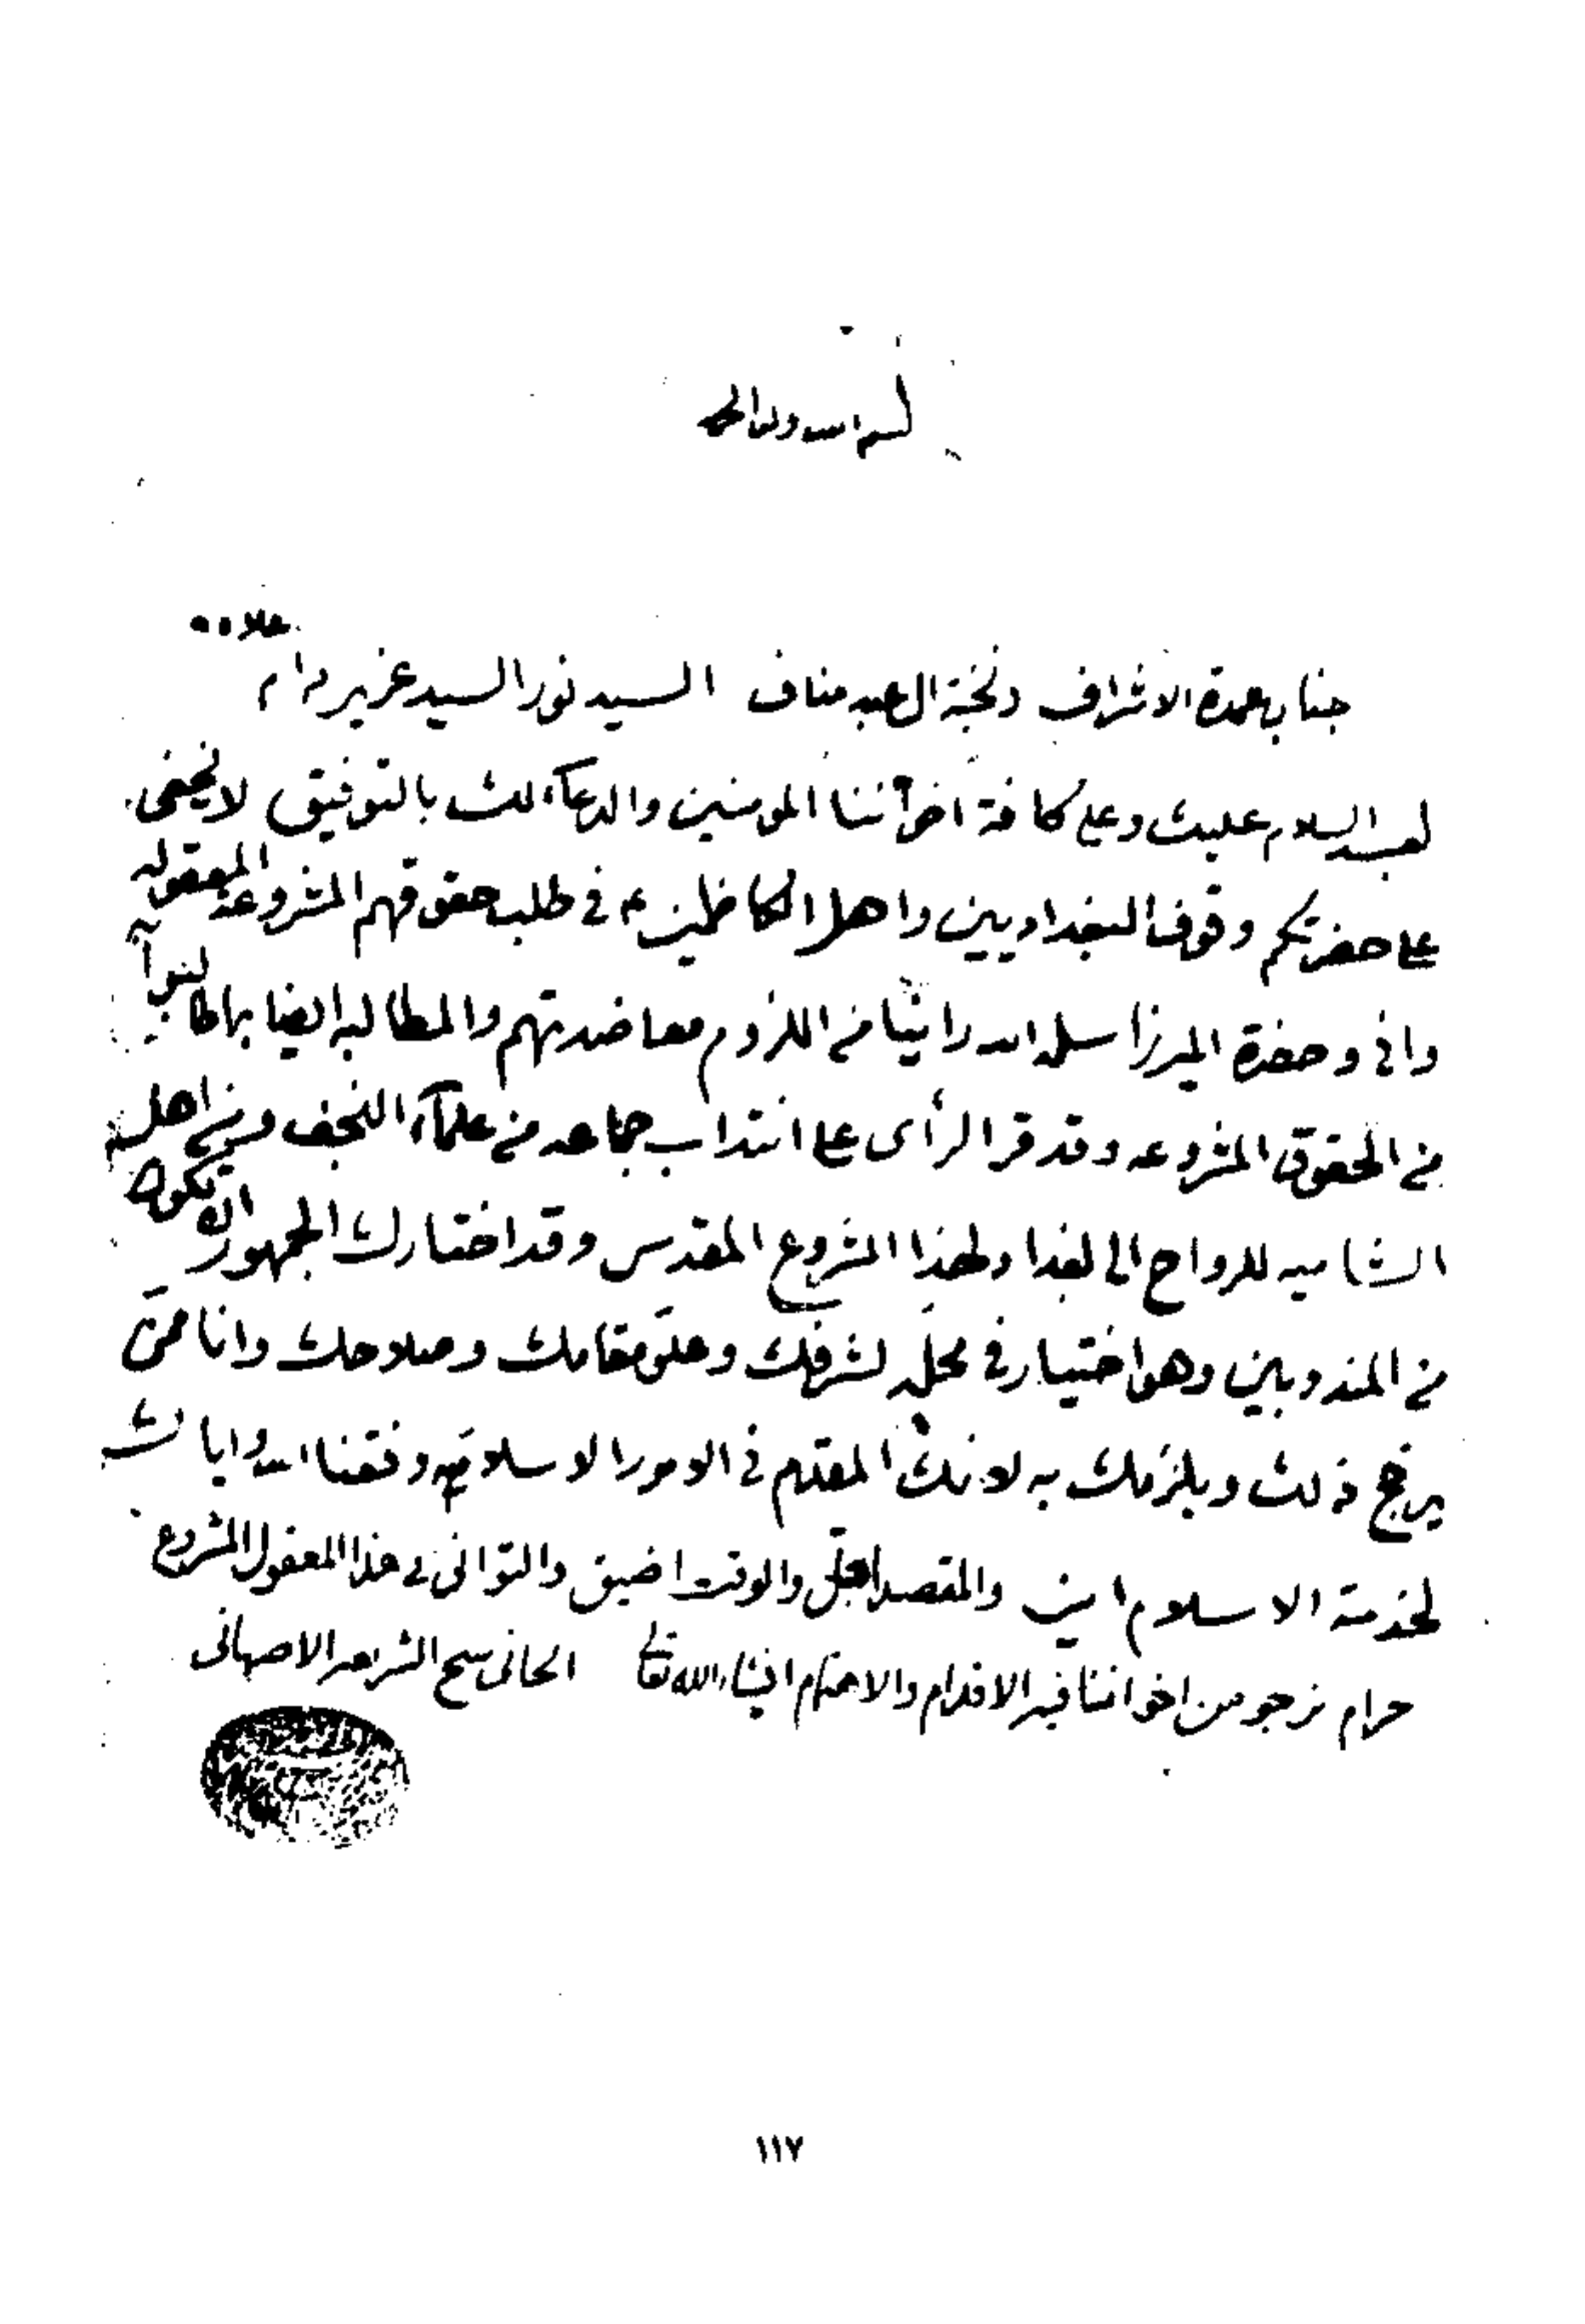 بسم الله وله الحمد
جناب عمدة الاشراف ونخبة ال عبد مناف السيد نور السيد عزيز دام علاه
بعد السلام عليك وعلى كافة اخواننا المومنين والدعاء لك بالتوفيق لا يخفى
على حضرتكم وقوف البغداديين واهل الكاظمين ع في طلب حقوقهم المشروعة المعقوله
واني وحضرة الميرزا سلمه الله راينا من اللازم معاضدتهم والمطالبه ايضا بها
من الحقوق المشروعه وقد قر الرأى على انتداب جماعه من علماء النجف ومن اهل
الشاميه للرواح الى بغداد لهذا المشروع المقدس وقد اختارك الجمهور ان تكون
من المندوبين وهو اختيار في محله لشرفك وعلو مقامك وصلاحك وانا ممن
يرجح ذلك ويلزمك به لانك المقدم في الامور الاسلاميه وفقنا الله واياك
لخدمة الاسلام امين والمقصد اجل والوقت اضيق والتواني في هذا المعقول المشروع
حرام نرجو من اخواننا فيه الاقدام والاهتمام انشاء الله تعالى الجاني شيخ الشريعه الاصبهاني
١١٧